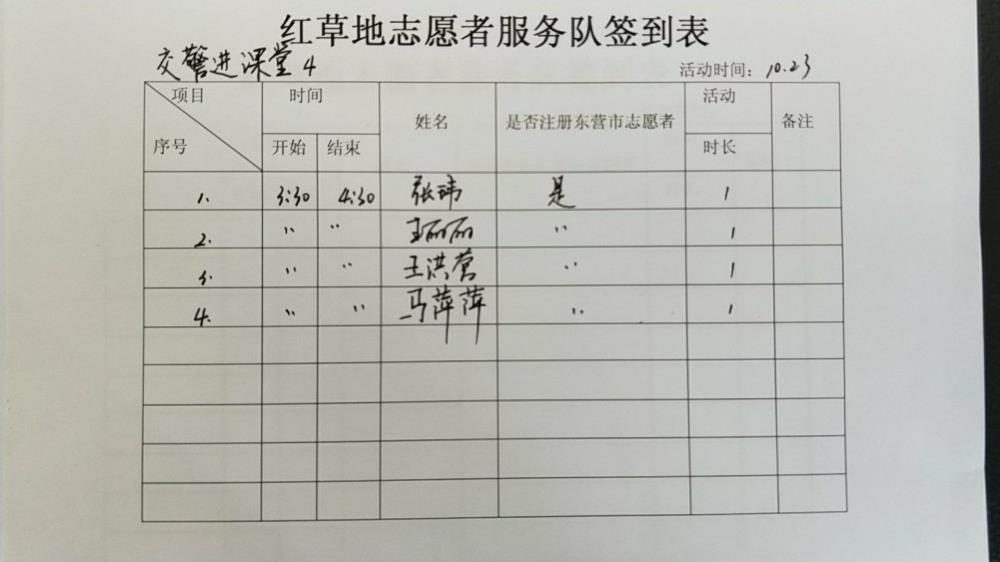 红草地志愿者服务队签到表
交警进课堂 4
活动时间：10.23
项目 时间 姓名 是否注册东营市志愿者 活动 备注
序号 开始 结束 时长
1. 3:30 4:30 张玮 是 1
2. 〃 〃 王丽丽 〃 1
3. 〃 〃 王洪营 〃 1
4. 〃 〃 马萍萍 〃 1